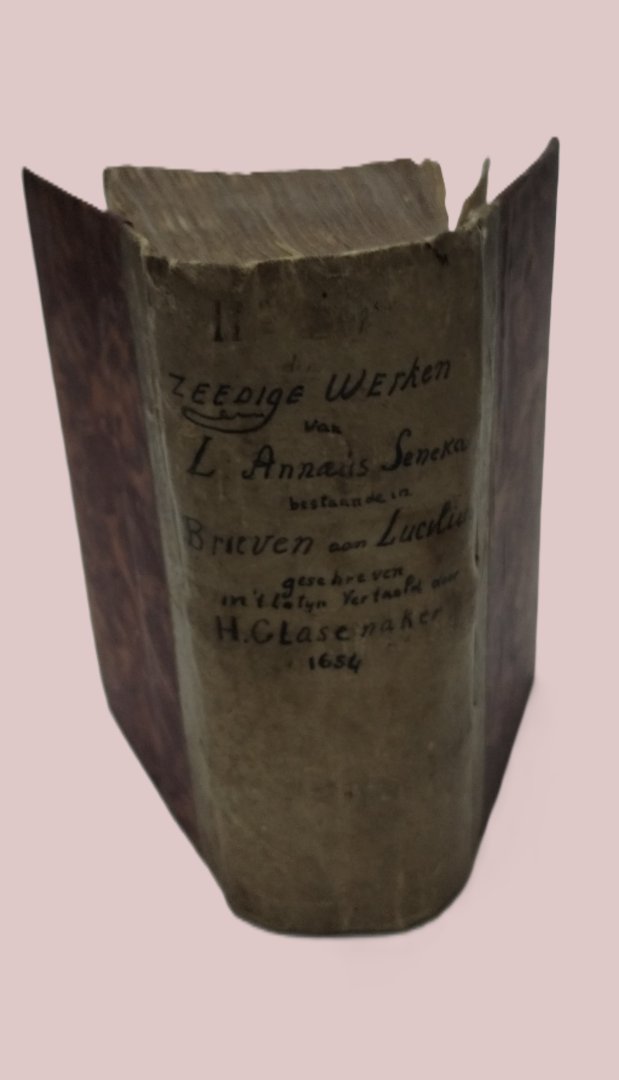 ZEEDIGE WERKEN
van
L. Annæus Seneka
bestaande in
BRIEVEN aan Lucilius
geschreven
in't latyn Vertaeld door
H. GLASEMAKER
1654